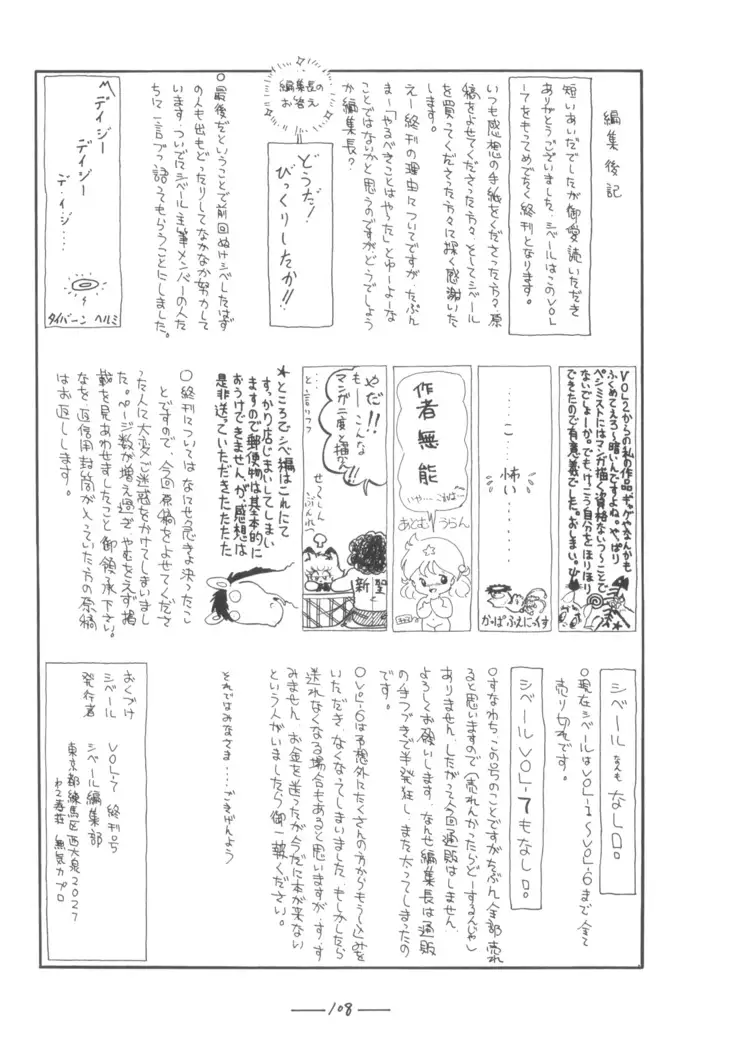 編集後記
短いあいだでしたが御愛読いただき
ありがとうございました。シベールはこのVOL
-7をもってめでたく終刊となります。
いつも感想の手紙をくださった方々、原
稿をよせてくださった方々、そしてシベール
を買ってくださった方々に深く感謝いた
します。
えー終刊の理由についてですが、たぶん
まー「やるべきことはやった」とゆーよーな
ことではないかと思うのですが、どうでしょう
か編集長?
編集長の
お答え
どうだ!
びっくりしたか!!
○最後だということで前回ぬけシベしたはず
の人も出もどったりしてなかなか努力して
います。ついでにシベール主筆メンバーの人た
ちに一言づつ語ってもらうことにしました。
デイジー
デイジー
デ、イジ……
タイバーン ヘルミ
VOL2からの私の作品ギャグやなんかも
ふくめてえろ〜暗いんですよね。やっぱり
ペシミストにはマンガ描く資格ないつうことで
ないでしょーか。でも、けっこう自分をほりほり
できたので有意義でした。おしまい。
……こ……怖い………
かっぱふぇにっくす
作者無能
いや…これは…
あとむ うらん
やだ!!
もー こんな
マンガ二度と描くん
…と言いつつ
新聖
★ところでシベ編はこれにて
すっかり店じまいしてしまい
ますので郵便物は基本的に
おうけできませんが、感想は
是非送っていただきたたたた
○終刊については なにせ急きょ決ったこ
とですので、今回原稿をよせてくださ
った人に大変ご迷惑をかけてしまいまし
た。ページ数が増え過ぎ やむをえず掲
載を見あわせましたこと御領承下さい。
なを 返信用封筒が入っていた方の原稿
はお返しします。
シベール なんも なし口。
○現在シベールはVOL-1〜VOL-6まで全て
売り切れです。
シベールVOL-7もなし口。
○すなわち、この号のことですがたぶん全部売れ
ると思いますので(売れんかったらどーするんじゃ)
ありません。したがって今回通販はしません。
よろしくお願いします。なんせ編集長は通販
の手つづきで半発狂し、また太ってしまったの
です。
○VOL-6は予想外にたくさんの方からもうし込みを
いただき、なくなってしまいました。もしかしたら
送れなくなる場合もあると思いますが、す、す
みません。お金を送ったが今だに本が来ない
という人がいましたら御一報ください。
それではみなさま……ごきげんよう
おくづけ
シベール VOL-7 終刊号
発行者 シベール編集部
東京都練馬区西大泉2027
無気力プロ
108